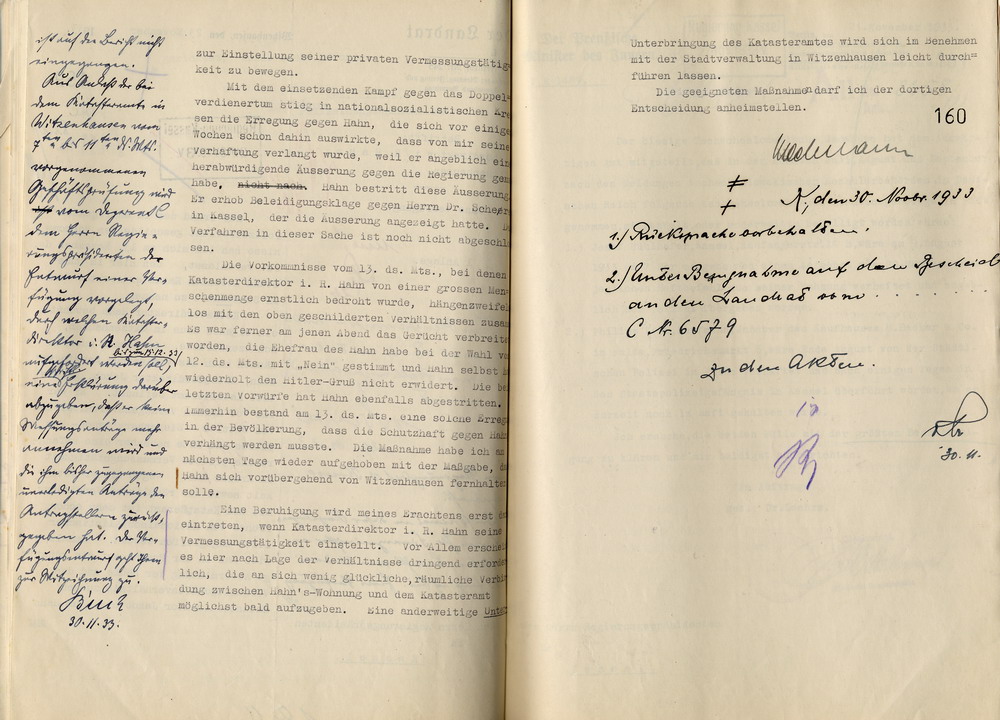 ist auf den Bericht nicht
eingegangen.
Aus Anlaß der bei
dem Katasteramte in
Witzenhausen vom
7ten bis 11ten ds. Mts.
vorgenommenen
Geschäftsprüfung wird
vom Dezernat C
dem Herrn Regie-
rungspräsidenten der
Entwurf einer Ver-
fügung vorgelegt,
durch welchen Kataster-
direktor i. R. Hahn
bis zum 15.12.33
aufgefordert werden soll,
eine Erklärung darüber
abzugeben, daß er keine
Messungsanträge mehr
annehmen wird und
die ihm bisher zugegangenen
unerledigten Anträge den
Antragstellern zurück-
gegeben hat. Der Ver-
fügungsentwurf geht Ihnen
zur Mitzeichnung zu.
30.11.33.
zur Einstellung seiner privaten Vermessungstätig
keit zu bewegen.
Mit dem einsetzenden Kampf gegen das Doppel
verdienertum stieg in nationalsozialistischen Kre
sen die Erregung gegen Hahn, die sich vor einige
Wochen schon dahin auswirkte, dass von mir seine
Verhaftung verlangt wurde, weil er angeblich ein
herabwürdigende Äusserung gegen die Regierung gem
habe, nicht nach. Hahn bestritt diese Äusserung
Er erhob Beleidigungsklage gegen Herrn Dr.
in Kassel, der die Äusserung angezeigt hatte. D
Verfahren in dieser Sache ist noch nicht abgeschlo
sen.
Die Vorkommnisse vom 13. ds. Mts., bei denen
Katasterdirektor i. R. Hahn von einer grossen Men
schenmenge ernstlich bedroht wurde, hängenzweifel
los mit den oben geschilderten Verhältnissen zusam
Es war ferner am jenen Abend das Gerücht verbreite
worden, die Ehefrau des Hahn habe bei der Wahl v
12. ds. Mts. mit „Nein" gestimmt und Hahn selbst
wiederholt den Hitler-Gruß nicht erwidert. Die be
letzten Vorwürfe hat Hahn ebenfalls abgestritten.
Immerhin bestand am 13. ds. Mts. eine solche Erreg
in der Bevölkerung, dass die Schutzhaft gegen Hahn
verhängt werden musste. Die Maßnahme habe ich am
nächsten Tage wieder aufgehoben mit der Maßgabe, d
Hahn sich vorübergehend von Witzenhausen fernhalte
solle.
Eine Beruhigung wird meines Erachtens erst d
eintreten, wenn Katasterdirektor i. R. Hahn seine
Vermessungstätigkeit einstellt. Vor Allem ersche
es hier nach Lage der Verhältnisse dringend erford
lich, die an sich wenig glückliche, räumliche Verbi
dung zwischen Hahn's-Wohnung und dem Katasteramt
möglichst bald aufzugeben. Eine anderweitige Unter
Unterbringung des Katasteramtes wird sich im Benehmen
mit der Stadtverwaltung in Witzenhausen leicht durch=
führen lassen.
Die geeigneten Maßnahmen darf ich der dortigen
Entscheidung anheimstellen.
160
K, den 30. Novbr. 1933
1.) Rücksprache vorbehalten.
2.) Unter Bezugnahme auf den Bescheid
an den Landrat vom . . . . . . . .
C Nr. 6579
zu den Akten.
30. 11.